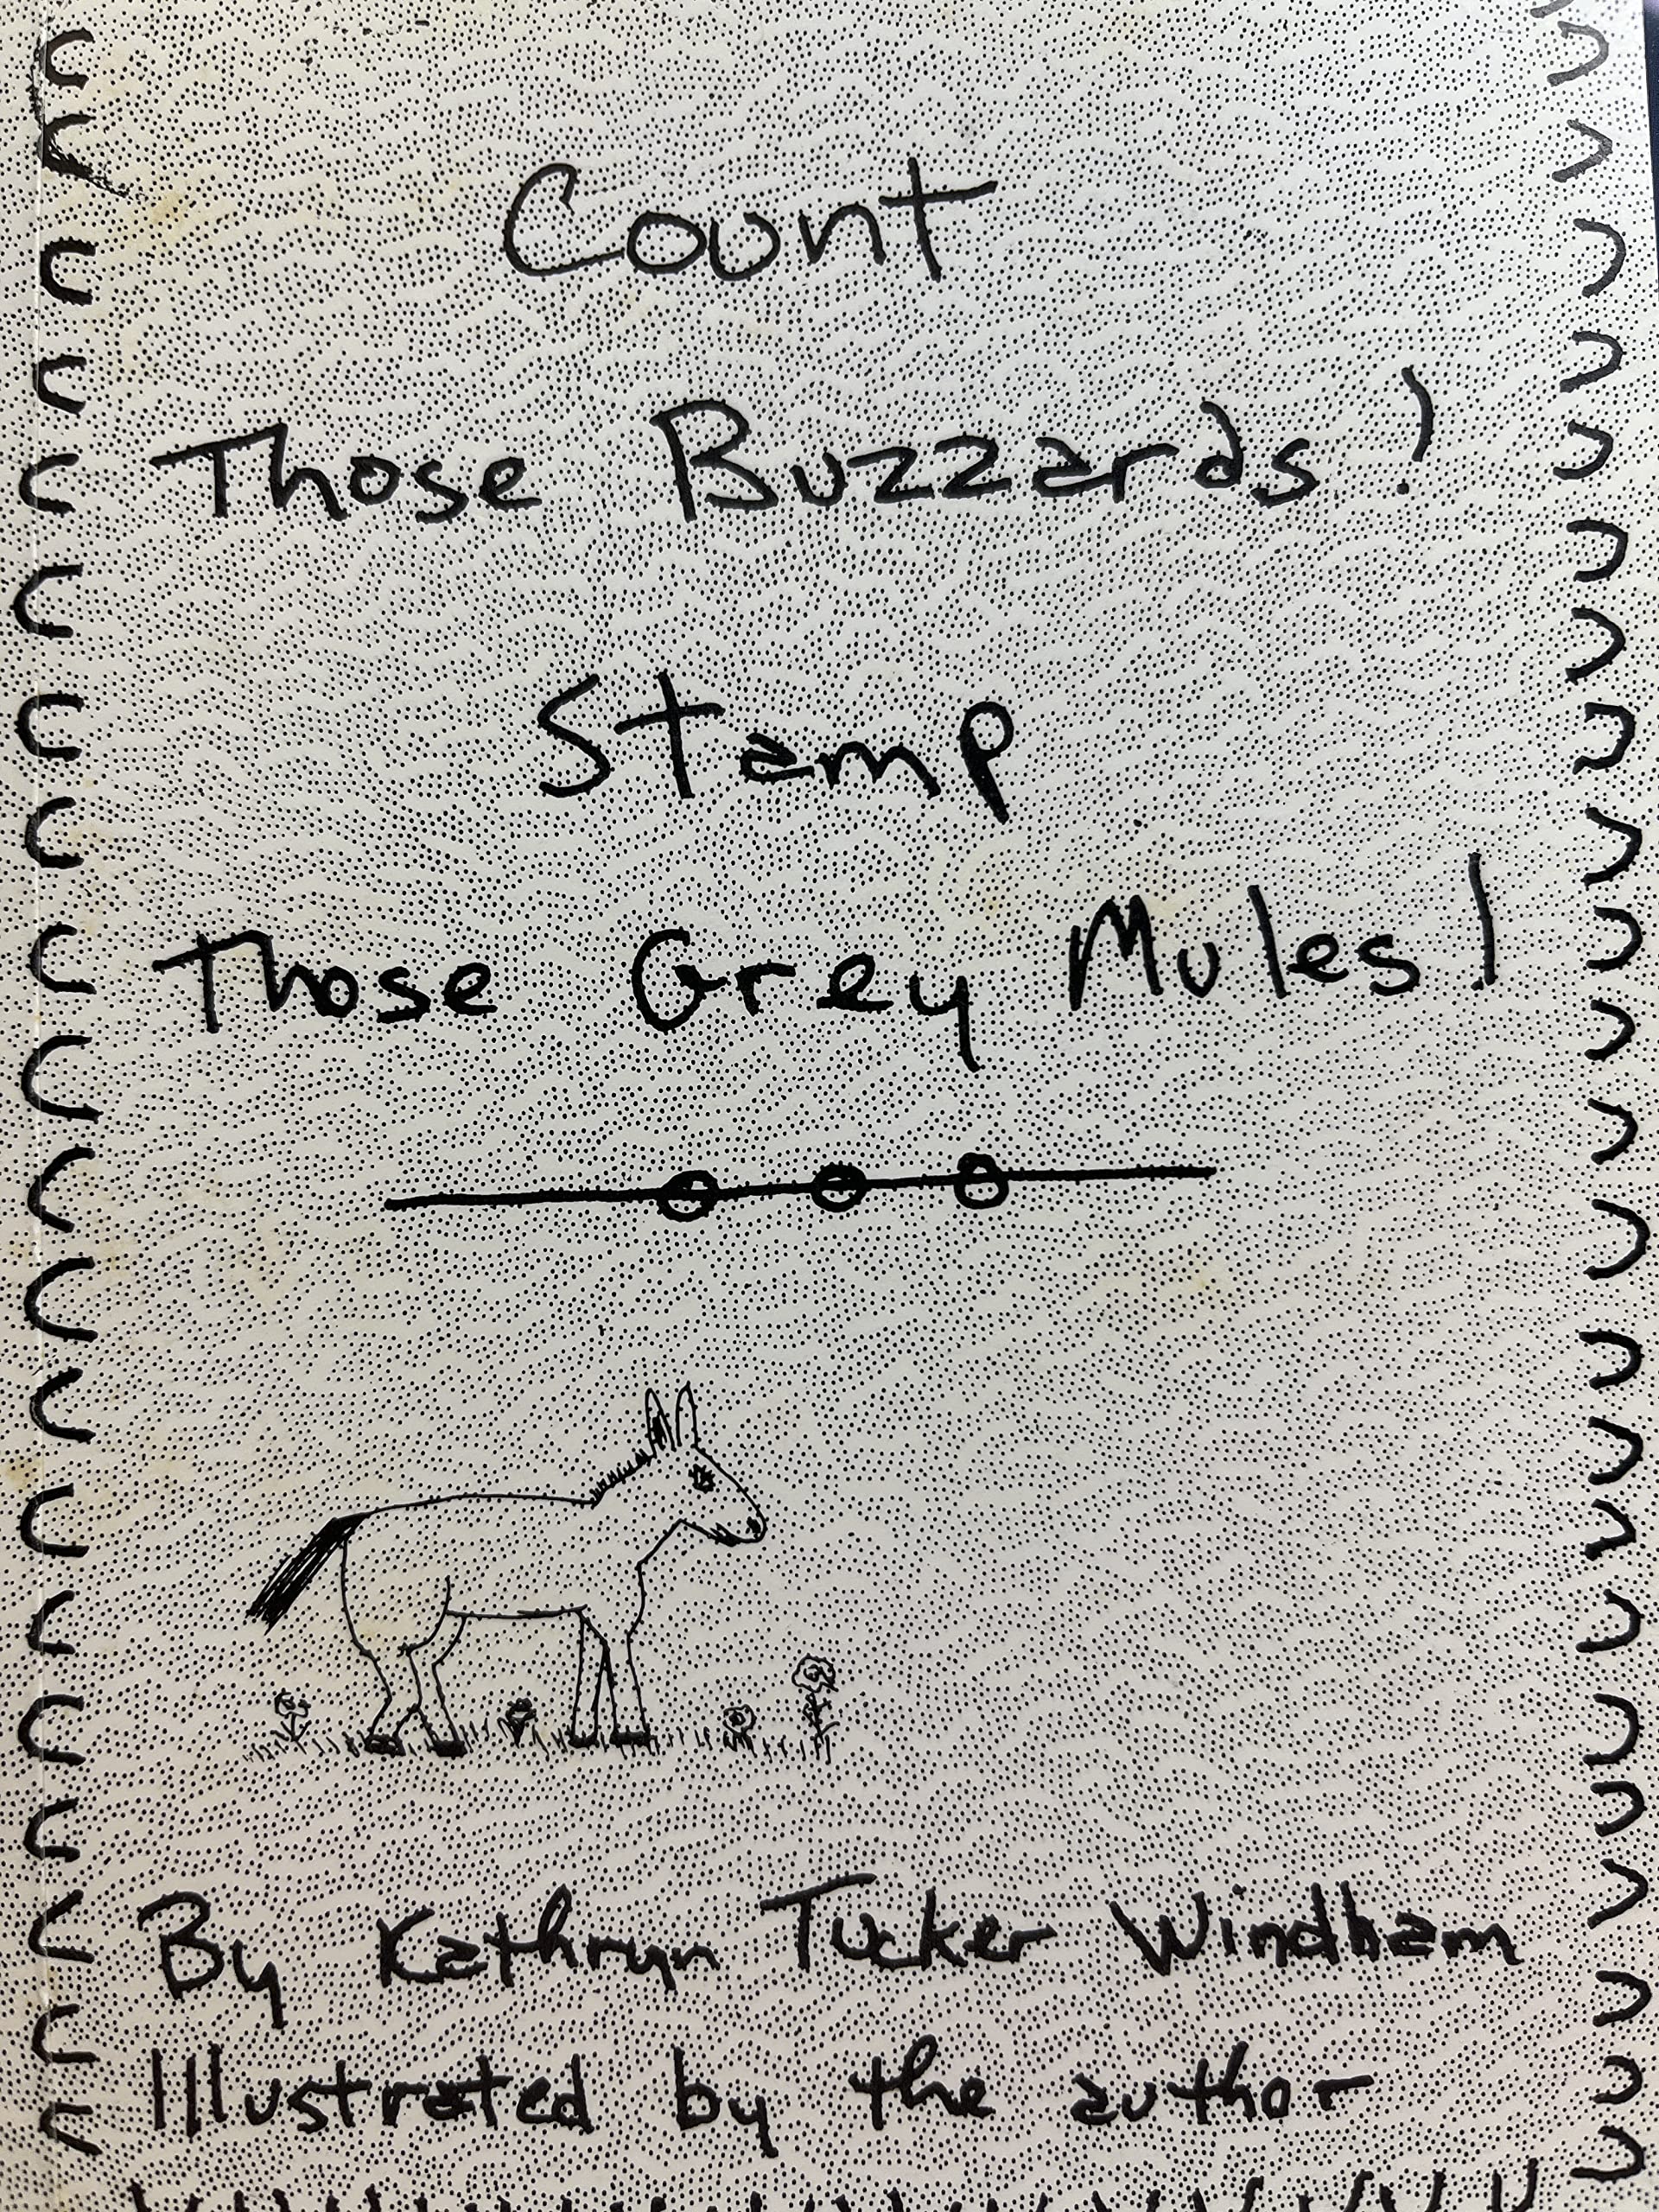 Count
Those Buzzards!
Stamp
Those Grey Mules!
By Kathryn Tucker Windham
Illustrated by the author